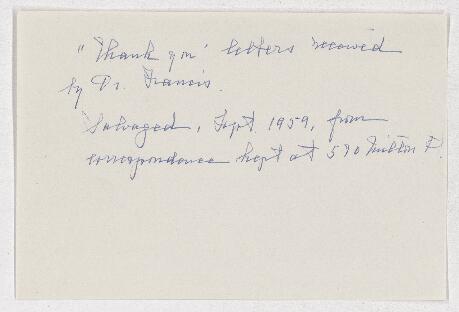 "Thank you" letters received
by Dr. Francis.
Salvaged, Sept. 1959, from
correspondence kept at 590 Milton P.